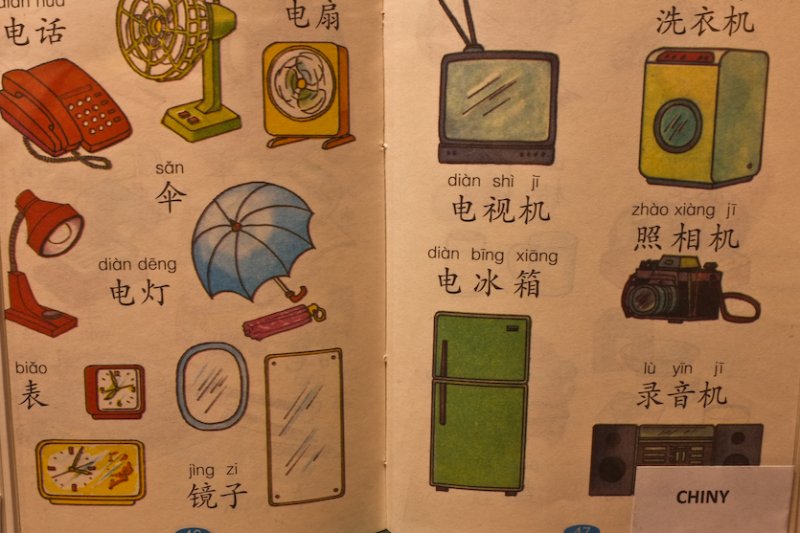 电话
电扇
sǎn
伞
diàn dēng
电灯
biǎo
表
jìng zi
镜子
洗衣机
diàn shì jī
电视机
zhào xiàng jī
照相机
diàn bīng xiāng
电冰箱
lù yīn jī
录音机
47
CHINY